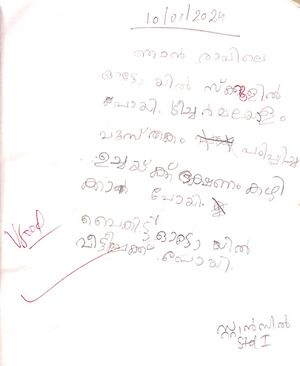 10/01/2024
ഞാൻ രാവിലെ
ഓട്ടോ യിൽ സ്ക്കൂളിൽ
പോയി. ടീച്ചർ മലയാളം
പുസ്തകം പഠിപ്പിച്ചു
ഉച്ചയ്ക്ക് ഭക്ഷണം കഴി
ക്കാൻ പോയി.
വൈകിട്ട് ഓട്ടോ യിൽ
വീട്ടിലേക്ക് പോയി.
Good
സ്റ്റാൻസിൽ
Std I